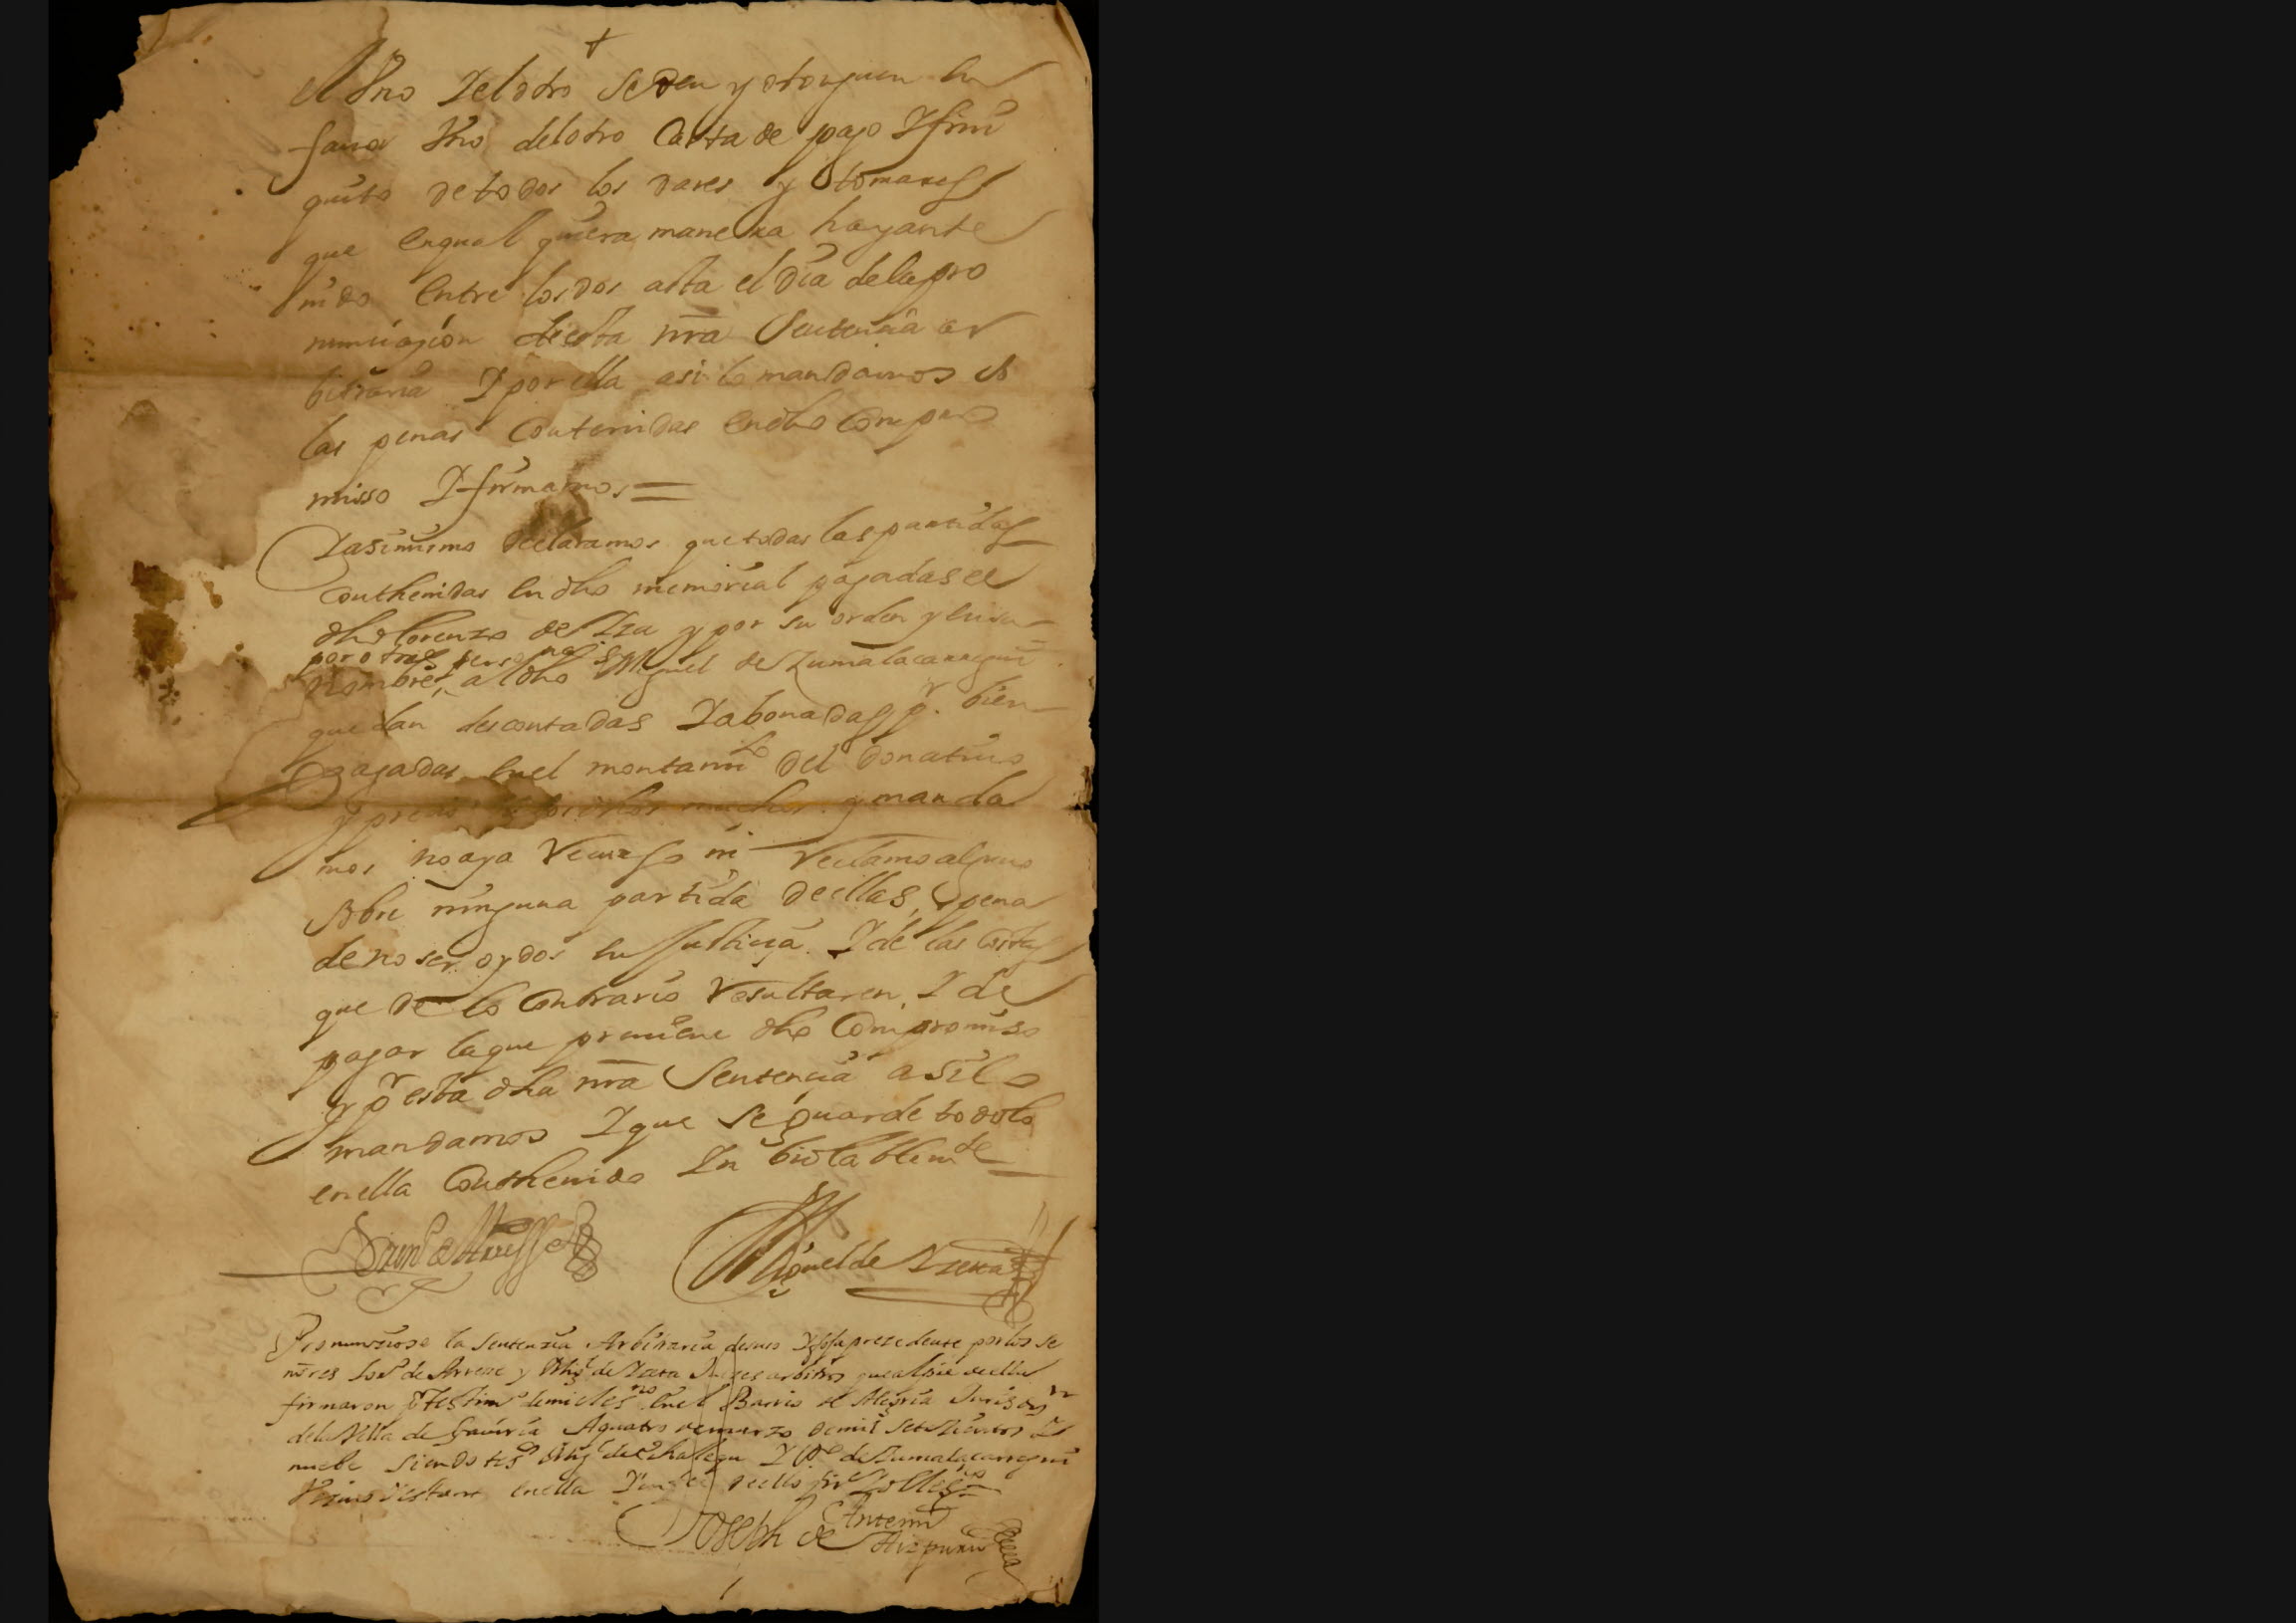 +
el Vno Y el otro se den y otorguen en
fauor Vno del otro Carta de pago Y fini
quito de todos los dares y tomares
que en qual quiera manera hayan te
nido entre los dos asta el dia de la pro
nunciaçion de esta nra Sentencia ar
bitraria Y por ella asi lo mandamos so
las penas Contenidas en dho Compro
misso Y firmamos =
Y asi mismo declaramos que todas las partidas
Conthenidas en dho memorial pagadas el
dho Lorenzo de Yza y por su orden y en su
por otras personas
nombre, a dho Miguel de Zumalacarregui
quedan descontadas Y abonadas pr. bien
pagadas en el montamto del donatiuo
y manda
mos no aya Recurso ni Reclamo alguno
sobre ninguna partida de ellas, pena
de no ser oydos en Justicia. Y de las Costas
que de lo Contrario Resultaren, Y de
pagar la que preuiene dho Compromiso
y pr esta dha nra Sentencia asi lo
mandamos Y que se guarde todo lo
en ella Conthenido Yn biolablemte
Miguel de
Pronunziose la Sentenzia Arbitraria de suso prezedente por los se
nores de Arrese y Migl de Juezes arbitros que al pie de ella
firmaron pr Testimo de mi el esno en el Barrio de Alegria Jurisdon
de la Villa de Gauiria A quatro de marzo de mil setezientos Y
nuebe siendo tesgos Migl de Y de Zumalacarregui
Vezinos Y estantes en ella de ello fir Yo el esno =
Antemi
Joseph de Aizpuru